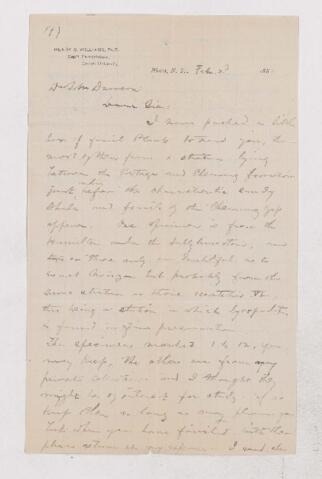 (1)
HENRY S. WILLIAMS, Ph.D.
Ithaca, N.Y., Feb. 188
Dr. Dawson
Dear Sir:
I have packed a little
box of fossil plants to send you, the
most of them from a stratum lying
between the Portage and Chemung
just before the characteristic sandy
shales and fossils of the Chemung
appear. One specimen is from the
Hamilton under the Tully limestone, and
two or three only are doubtful as to
exact horizon but probably from the
same stratum as those
this being a station in which
is found in fine preservation
The specimens marked 1 to you
may keep, the others are from my
private collection and I thought they
might be of interest for study, if so
keep them so long as you please,
but when you have finished with them
please return at my expense. I send also